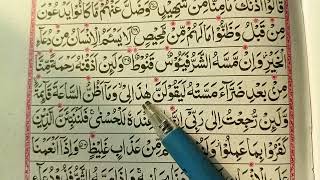 قَالُوۡۤا اٰذَنّٰكَ مَا مِنَّا مِنۡ شَهِيۡدٍ وَضَلَّ عَنۡهُمۡ مَّا كَانُوۡا يَدۡعُوۡنَ
مِنۡ قَبۡلُ وَظَنُّوۡا مَا لَهُمۡ مِّنۡ مَّحِيۡصٍ لَا يَسۡـَٔمُ الۡاِنۡسَانُ مِنۡ دُعَآءِ
الۡخَيۡرِ وَاِنۡ مَّسَّهُ الشَّرُّ فَيَـُٔوۡسٌ قَنُوۡطٌ وَلَئِنۡ اَذَقۡنٰهُ رَحۡمَةً مِّنَّا
مِنۡۢ بَعۡدِ ضَرَّآءَ مَسَّتۡهُ لَيَقُوۡلَنَّ هٰذَا لِىۡ وَمَاۤ اَظُنُّ السَّاعَةَ قَآئِمَةً
وَّلَئِنۡ رُّجِعۡتُ اِلٰى رَبِّىۡۤ عِنۡدَهٗ لَلۡحُسۡنٰى فَلَنُنَبِّئَنَّ الَّذِيۡنَ
كَفَرُوۡا بِمَا عَمِلُوۡا مِّنۡ عَذَابٍ غَلِيۡظٍ وَاِذَاۤ اَنۡعَمۡنَا